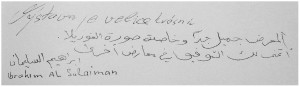 Výstava je velice krásná
المعرض جميل جداً وخاصة صورة الغوريلا.
أتمنى لك التوفيق في معارض أخرى
ابراهيم السليمان
Ibrahim AL Sulaiman